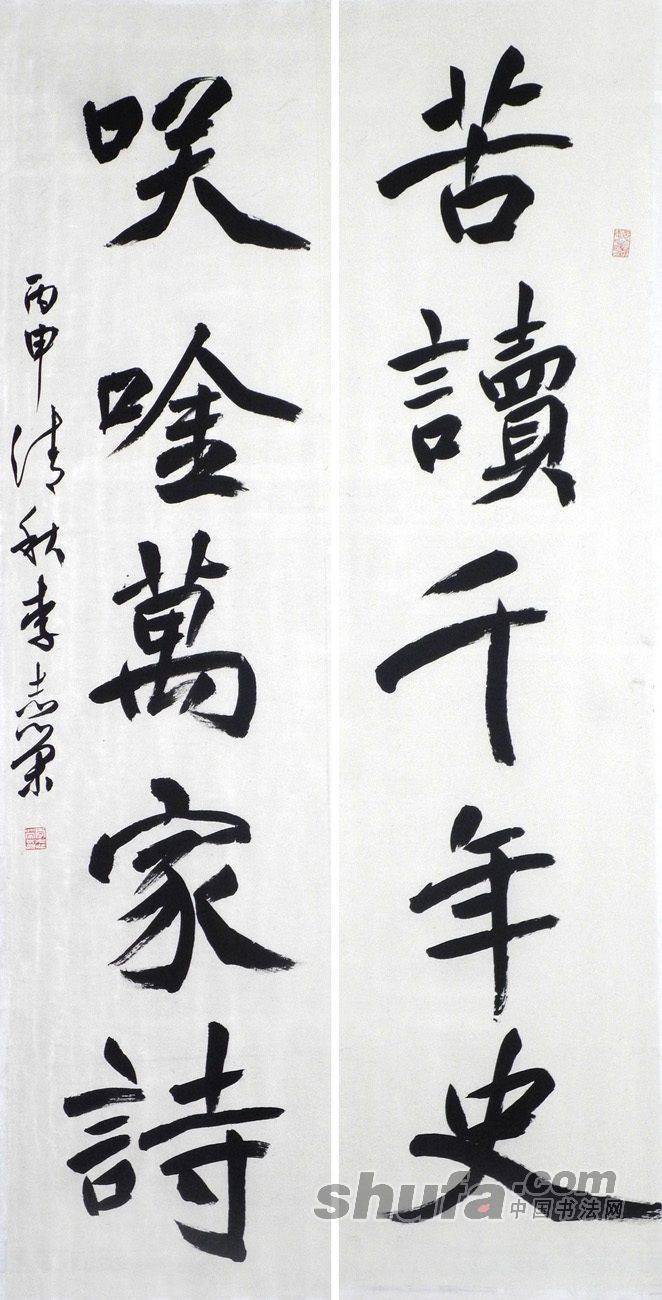 苦讀千年史
咲唫萬家詩
丙申清秋李志
shufa.com
中国书法网